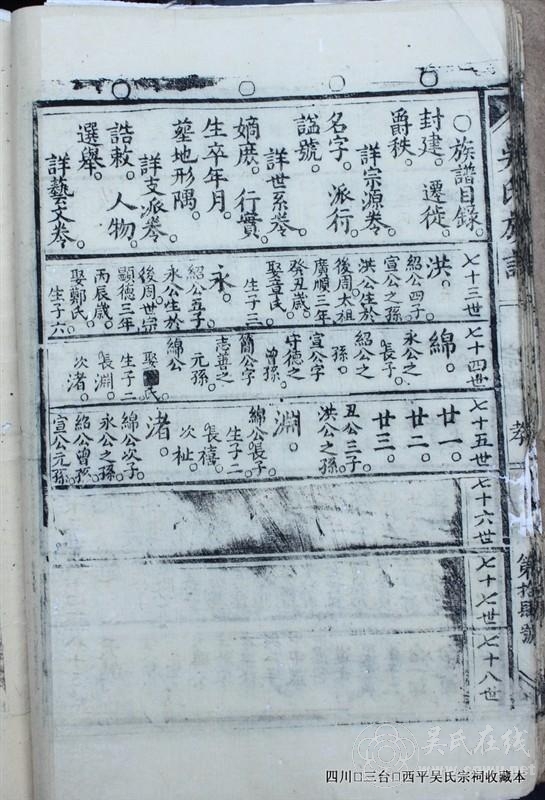 吳氏族譜
第拾肆號
〇族譜目錄。
封建。遷徙。
爵秩。
詳宗源卷。
名字。派行。
謚號。
詳世系卷。
嫡庶。行實。
生卒年月。
塋地形隅。
詳支派卷。
誥敕。人物。
選舉。
詳藝文卷。
七十三世
洪。
紹公四子。
宣公之孫。
洪公生於
後周太祖
廣順三年
癸丑歲。
娶章氏。
生子三。
永。
紹公五子。
永公生於
後周世宗
顯德三年
丙辰歲。
娶鄭氏。
生子六。
七十四世
綿。
永公之
長子。
紹公之
孫。
宣公字
守德之
曾孫。
簡公字
志善之
元孫。
綿公
娶 氏。
生子二。
長淵。
次渚。
七十五世
廿一。
廿二。
廿三。
丑公三子。
洪公之孫。
淵。
綿公長子。
生子二。
長禧。
次祉。
渚。
綿公次子。
永公之孫。
紹公曾孫。
宣公元孫。
七十六世
七十七世
七十八世
吴氏在线
四川□三台□西平吴氏宗祠收藏本